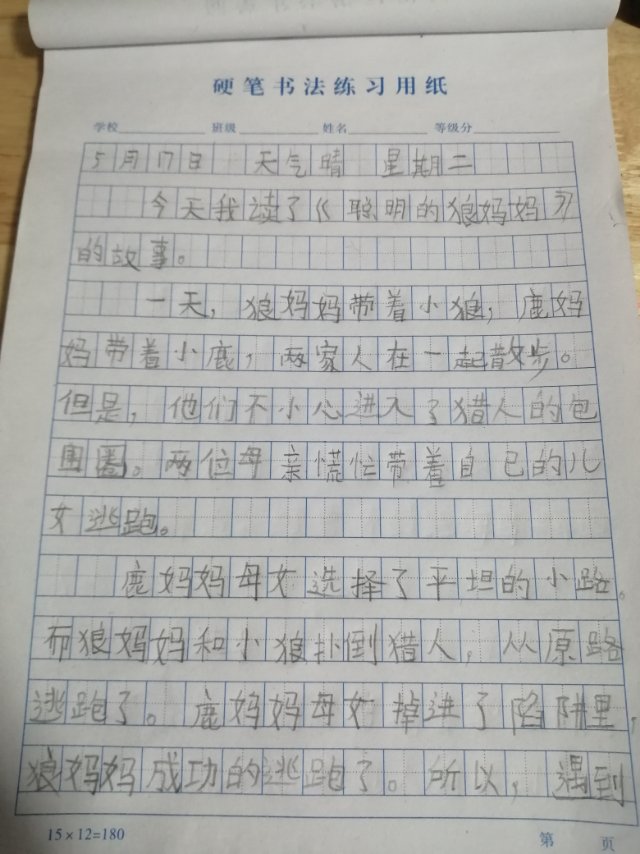 硬笔书法练习用纸
学校 班级 姓名 等级分
5月17日 天气晴 星期二
今天我读了《聪明的狼妈妈》
的故事。
一天，狼妈妈带着小狼，鹿妈
妈带着小鹿，两家人在一起散步。
但是，他们不小心进入了猎人的包
围圈。两位母亲慌忙带着自己的儿
女逃跑。
鹿妈妈母女选择了平坦的小路。
而狼妈妈和小狼扑倒猎人，从原路
逃跑了。鹿妈妈母女掉进了陷阱里，
狼妈妈成功的逃跑了。所以，遇到
15×12=180 第 页